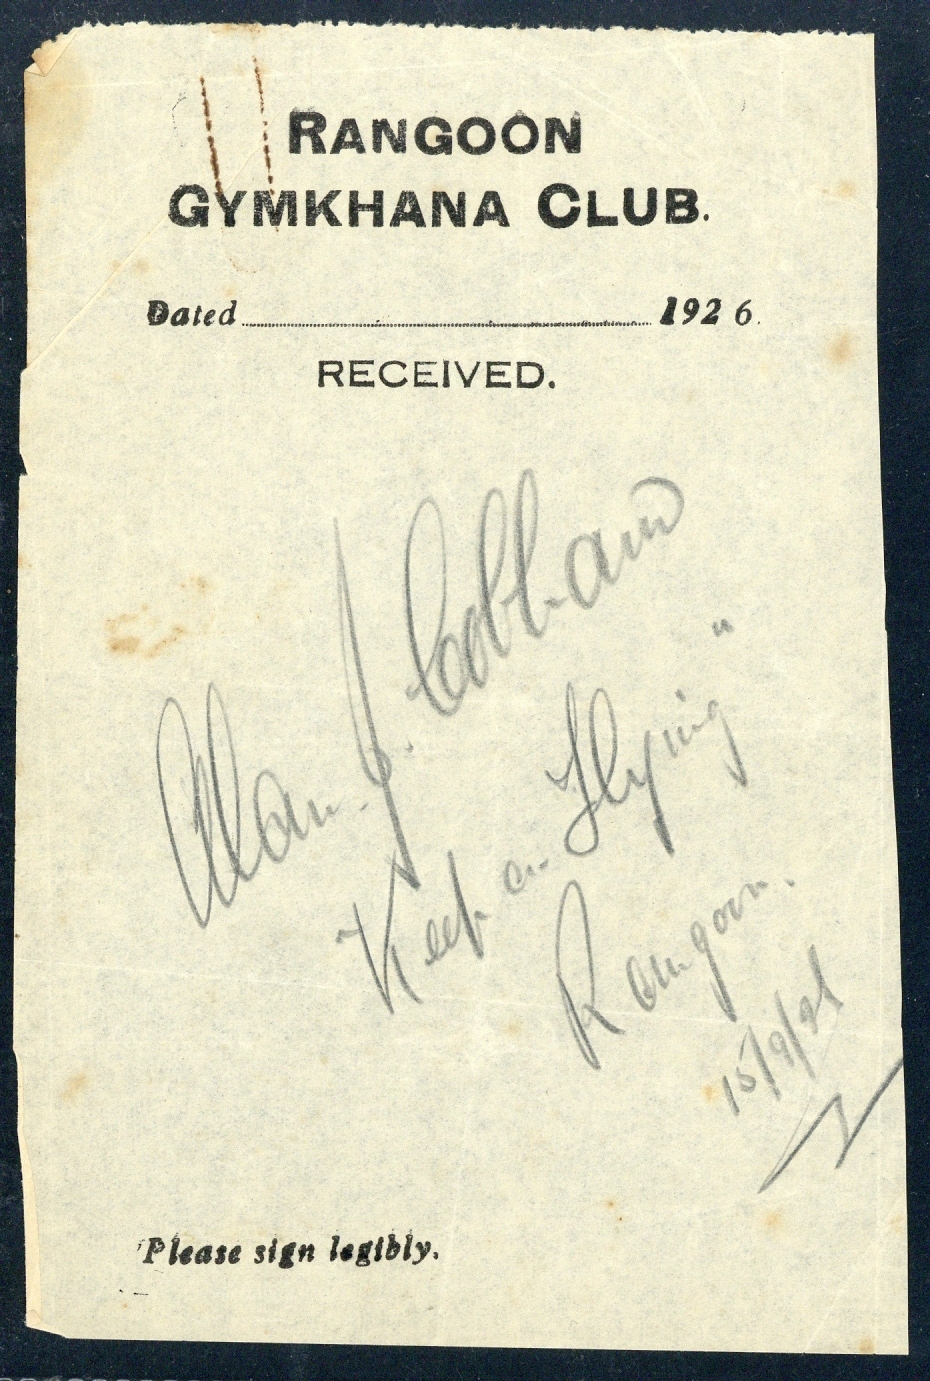 RANGOON
GYMKHANA CLUB.
Dated 1926.
RECEIVED.
Alan J. Cobham
Keep on Flying "
Rangoon.
15/9/26
Please sign legibly.